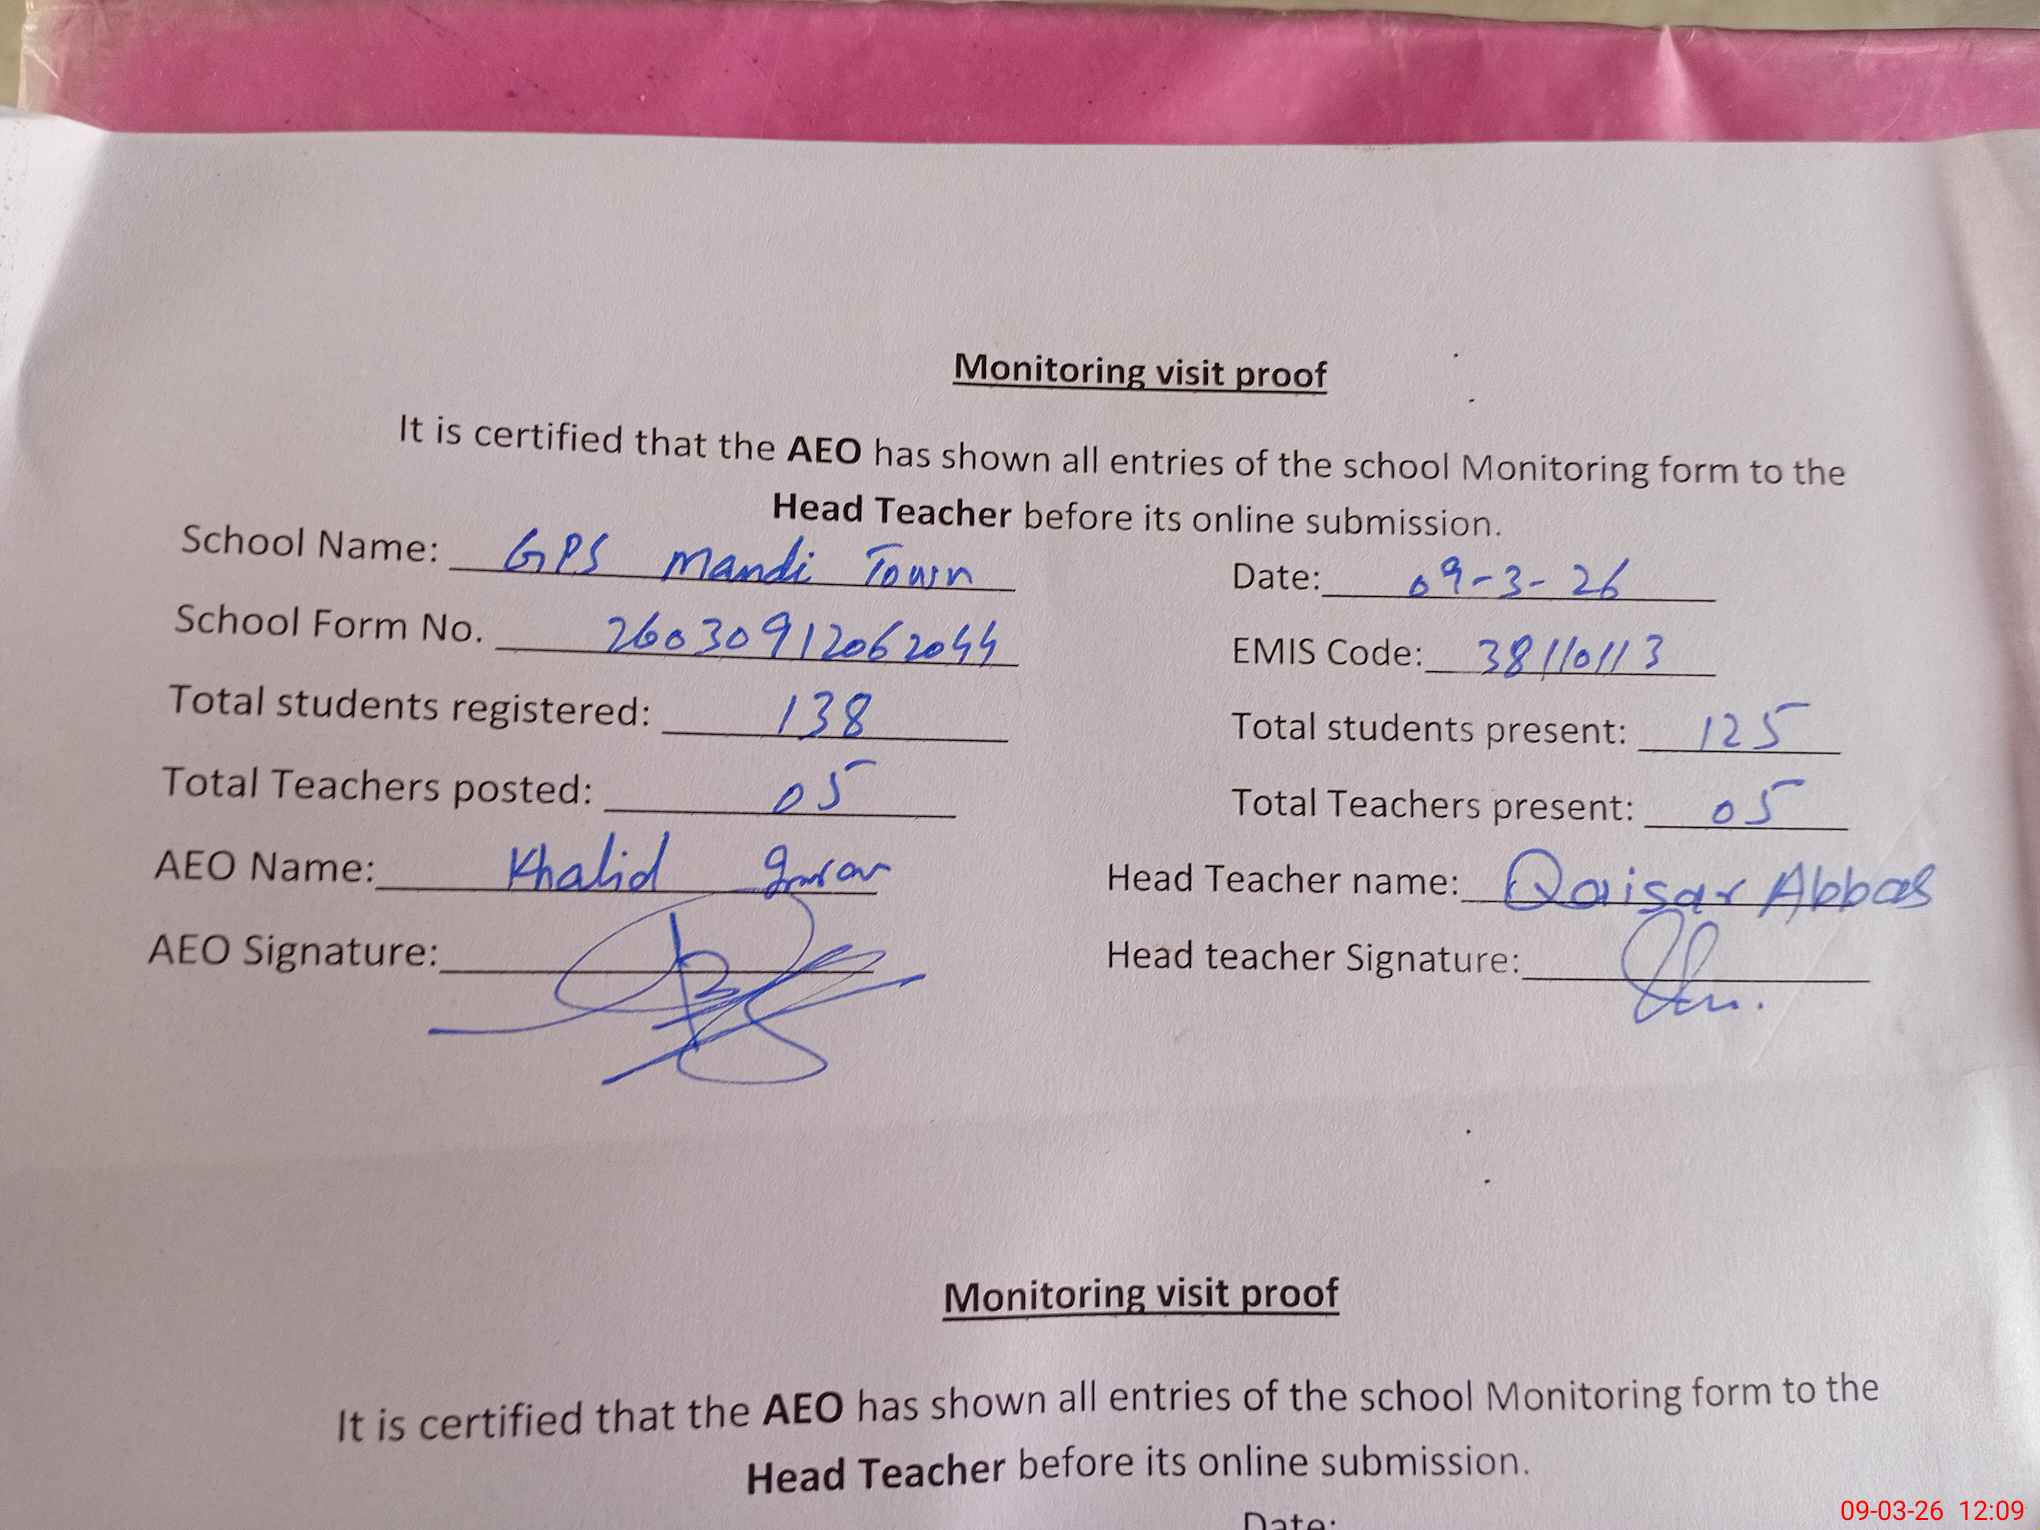 Monitoring visit proof
It is certified that the AEO has shown all entries of the school Monitoring form to the
Head Teacher before its online submission.
School Name: GPS Mandi Town
Date: 09-3-26
School Form No. 26030912062044
EMIS Code: 38110113
Total students registered: 138
Total students present: 125
Total Teachers posted: 05
Total Teachers present: 05
AEO Name: Khalid Imran
Head Teacher name: Qaisar Abbas
AEO Signature:
Head teacher Signature:
Monitoring visit proof
It is certified that the AEO has shown all entries of the school Monitoring form to the
Head Teacher before its online submission.
Date:
09-03-26 12:09